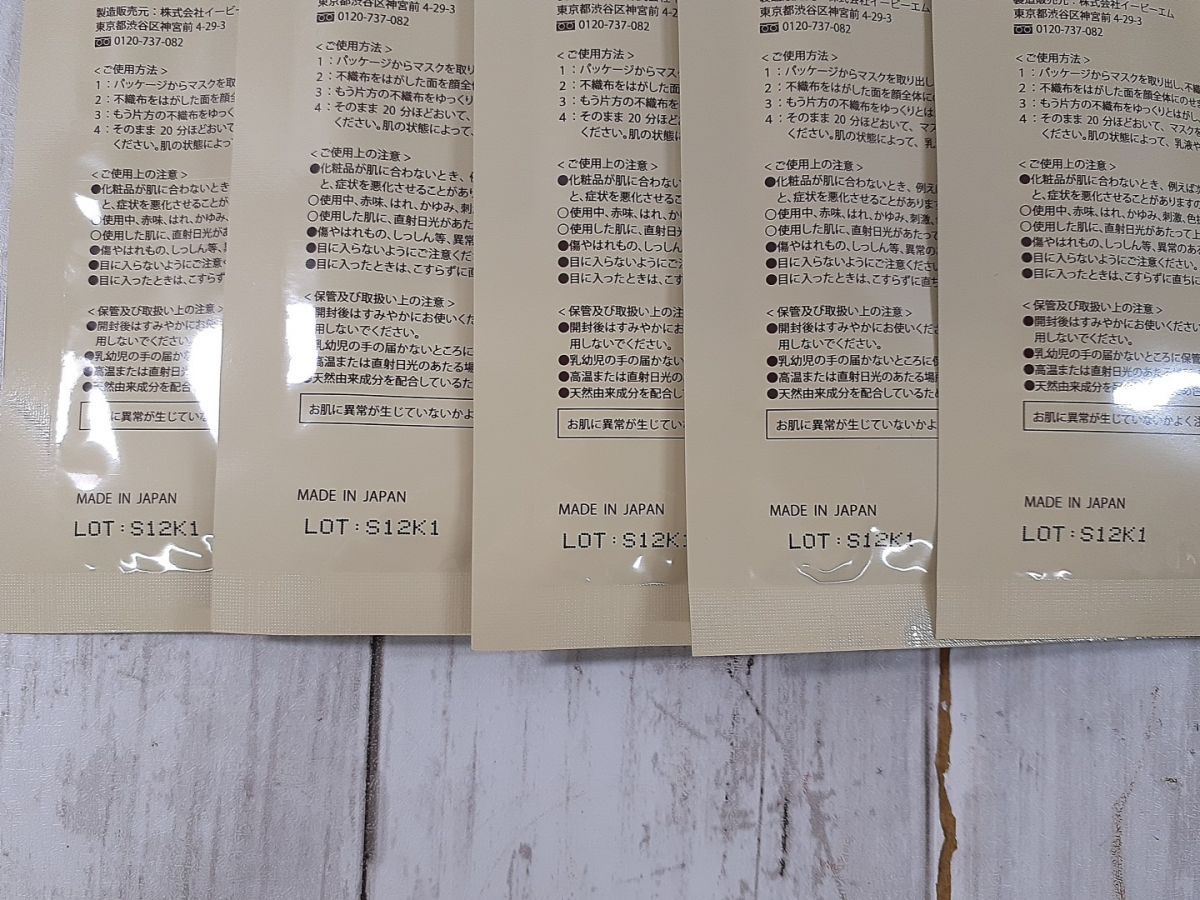 製造販売元：株式会社イービー
東京都渋谷区神宮前 4-29-3
0120-737-082
<ご使用方法>
1：パッケージからマスクを取
2：不織布をはがした面を顔全
3：もう片方の不織布をゆっく
4：そのまま 20 分ほどおいて
ください。肌の状態によっ
<ご使用上の注意>
●化粧品が肌に合わないとき
と、症状を悪化させること
○使用中、赤味、はれ、かゆみ
○使用した肌に、直射日光が
●傷やはれもの、しっしん等、
●目に入らないようにご注意
●目に入ったときは、こすらず
<保管及び取扱い上の注意>
●開封後はすみやかにお使
用しないでください。
●乳幼児の手の届かな
●高温または直射日光
●天然由来成分を配合
に異常が生じていな
MADE IN JAPAN
LOT:S12K1
東京都渋谷区神宮前 4-29-3
0120-737-082
<ご使用方法>
1：パッケージからマスクを取り
2：不織布をはがした面を顔全
3：もう片方の不織布をゆっくり
4：そのまま 20 分ほどおいて、
ください。肌の状態によって、
<ご使用上の注意>
●化粧品が肌に合わないとき、
と、症状を悪化させることがあ
○使用中、赤味、はれ、かゆみ、刺
○使用した肌に、直射日光があた
●傷やはれもの、しっしん等、異常
●目に入らないようにご注意くださ
●目に入ったときは、こすらずに直
<保管及び取扱い上の注意>
開封後はすみやかにお使いくだ
用しないでください。
乳幼児の手の届かないところに
高温または直射日光のあたる場
天然由来成分を配合しているた
お肌に異常が生じていないかよ
MADE IN JAPAN
LOT:S12K1
東京都渋谷区神宮前 4-29-3
0120-737-082
<ご使用方法>
1：パッケージからマスクを取
2：不織布をはがした面を顔全
3：もう片方の不織布をゆっく
4：そのまま 20 分ほどおいて
ください。肌の状態によっ
<ご使用上の注意>
●化粧品が肌に合わないとき
と、症状を悪化させること
○使用中、赤味、はれ、か
○使用した肌に、直射日光
●傷やはれもの、しっしん
●目に入らないようにご注
●目に入ったときは、こす
<保管及び取扱い上の注意>
●開封後はすみやかにお使
用しないでください。
●乳幼児の手の届かない
●高温または直射日光の
●天然由来成分を配合し
お肌に異常が生じてい
MADE IN JAPAN
LOT:S12K1
製造販売元：株式会社イービーエム
東京都渋谷区神宮前 4-29-3
0120-737-082
<ご使用方法>
1：パッケージからマスクを取り出し、
2：不織布をはがした面を顔全体に
3：もう片方の不織布をゆっくりとは
4：そのまま 20 分ほどおいて、マス
ください。肌の状態によって、乳
<ご使用上の注意>
●化粧品が肌に合わないとき、例え
と、症状を悪化させることがありま
○使用中、赤味、はれ、かゆみ、刺激、
○使用した肌に、直射日光があたって
●傷やはれもの、しっしん等、異常の
●目に入らないようにご注意ください
●目に入ったときは、こすらずに直ち
<保管及び取扱い上の注意>
●開封後はすみやかにお使いくだ
用しないでください。
●乳幼児の手の届かないところに
●高温または直射日光のあたる場
●天然由来成分を配合しているた
お肌に異常が生じていないかよ
MADE IN JAPAN
LOT:S12K1
製造販売元：株式会社イービーエム
東京都渋谷区神宮前 4-29-3
0120-737-082
<ご使用方法>
1：パッケージからマスクを取り出し、不織
2：不織布をはがした面を顔全体にのせ
3：もう片方の不織布をゆっくりとはがし
4：そのまま 20 分ほどおいて、マスク
ください。肌の状態によって、乳液や
<ご使用上の注意>
●化粧品が肌に合わないとき、例えば
と、症状を悪化させることがありますの
○使用中、赤味、はれ、かゆみ、刺激、色
○使用した肌に、直射日光があたって上
●傷やはれもの、しっしん等、異常のある
●目に入らないようにご注意ください。
●目に入ったときは、こすらずに直ちに
<保管及び取扱い上の注意>
●開封後はすみやかにお使いください
用しないでください。
●乳幼児の手の届かないところに保管
●高温または直射日光のあたる
●天然由来成分を配合しているため
お肌に異常が生じていないかよく注
MADE IN JAPAN
LOT:S12K1